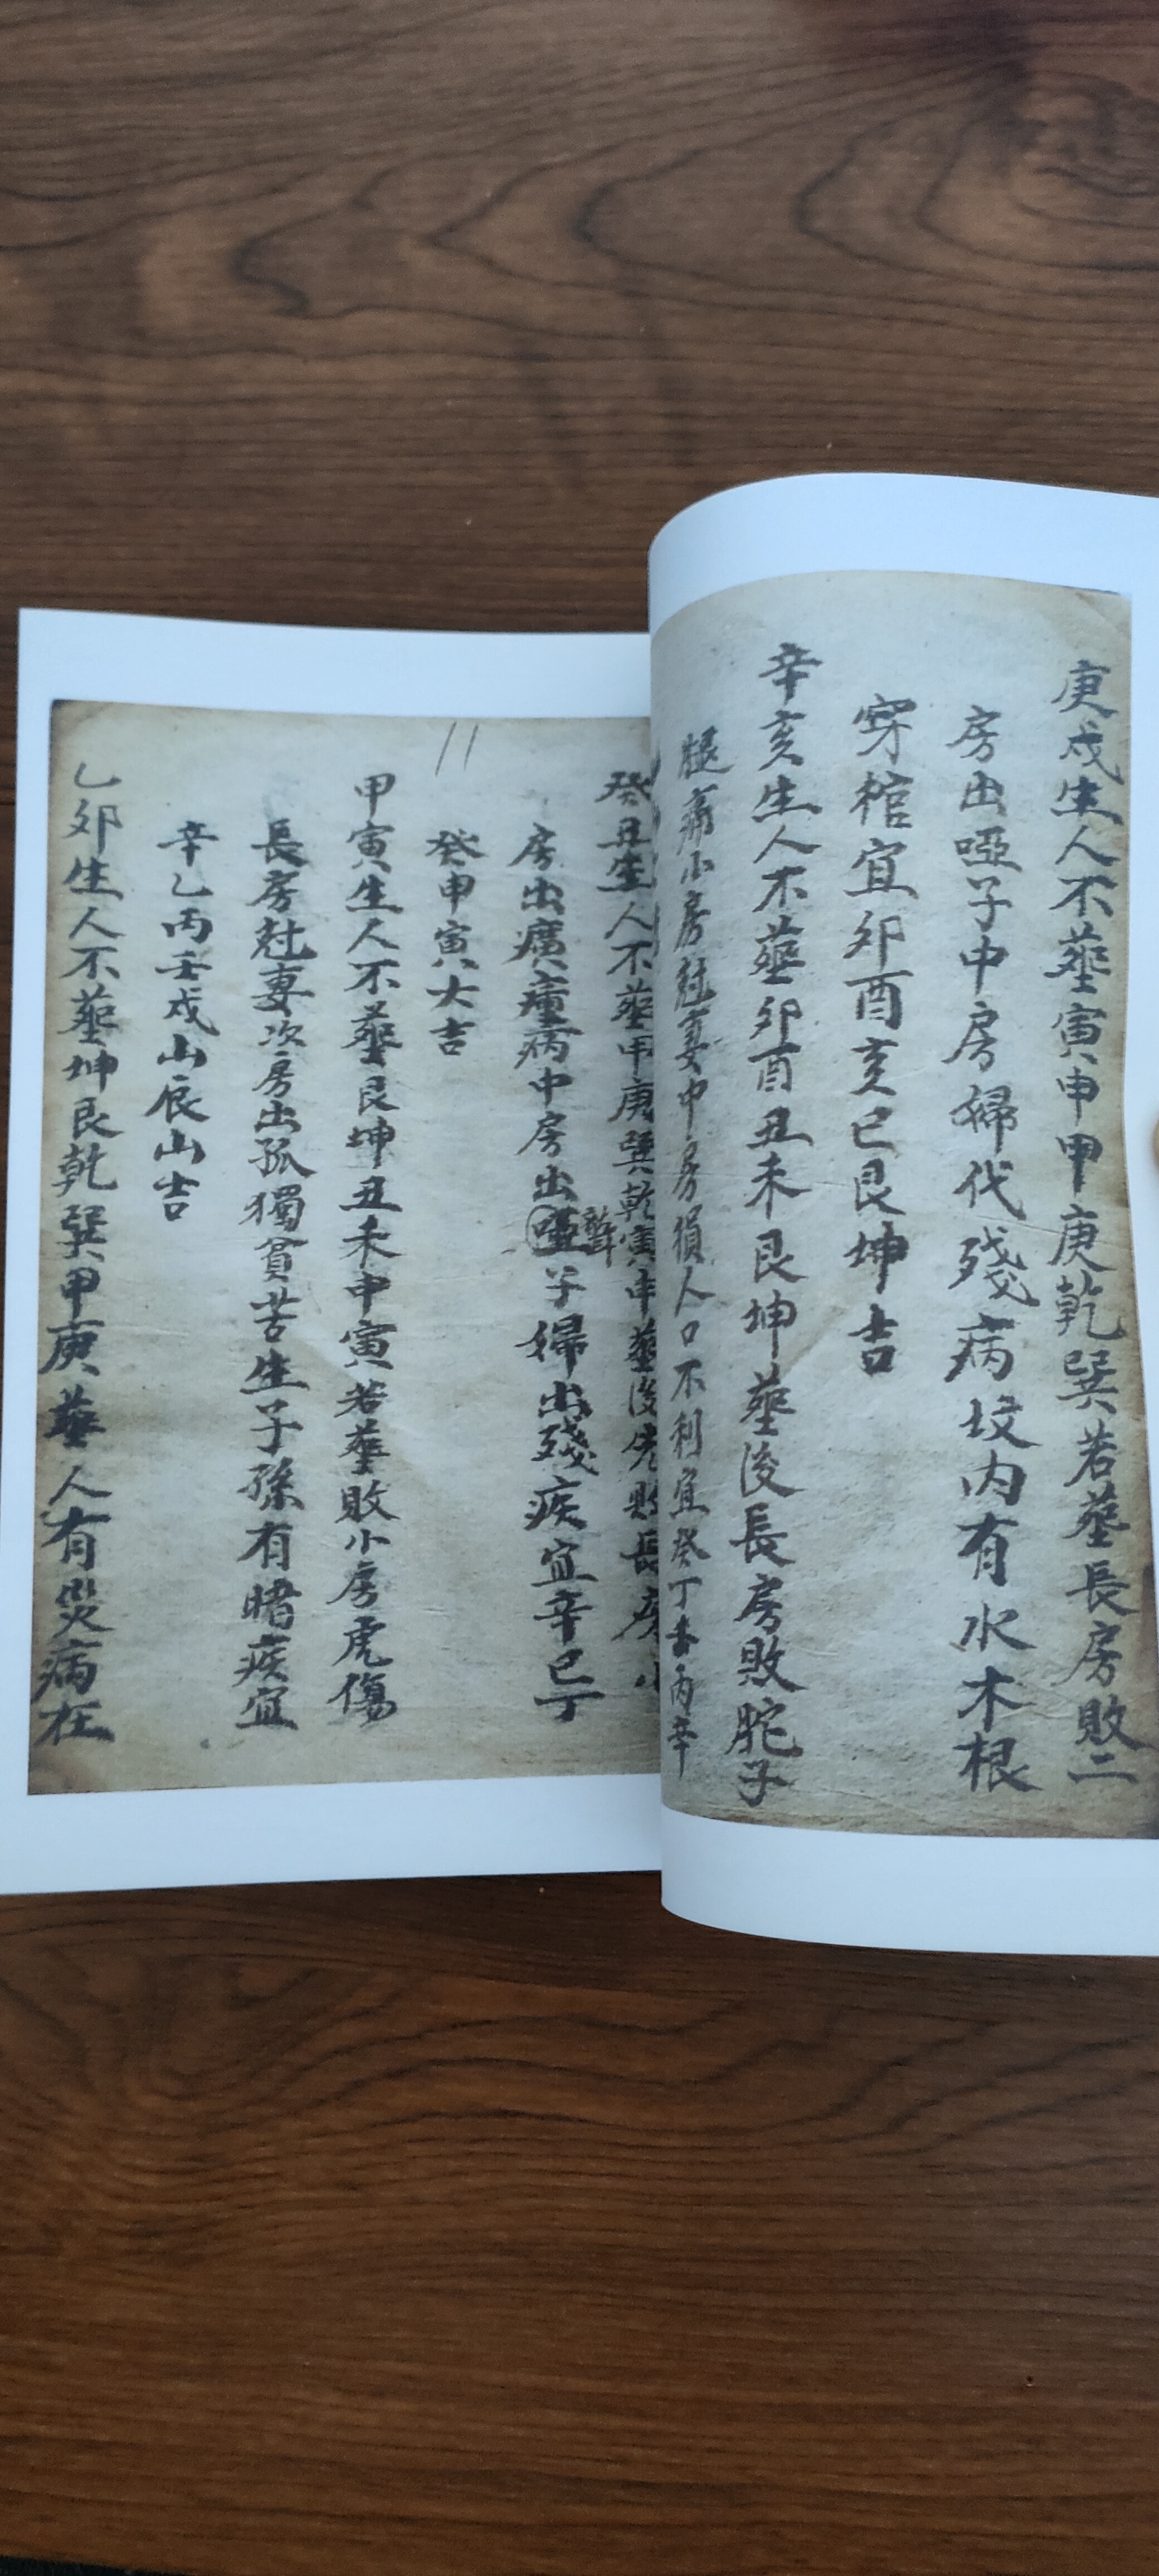 庚戍生人不葬寅申甲庚乾巽若葬長房敗二
房出啞子中房婦代殘病坟内有水木根
穿棺宜夘酉亥巳艮坤吉
辛亥生人不葬夘酉丑未艮坤葬後長房敗跎子
腿痛小房尅妻中房損人口不利宜癸丁丙辛
癸丑生人不葬甲庚巽乾寅申葬後敗長房小
房出癀瘇病中房出啞聾子婦出殘疾宜辛巳丁
癸申寅大吉
甲寅生人不葬艮坤丑未申寅若葬敗小房虎傷
長房尅妻次房出孤獨貧苦生子孫有暗疾宜
辛乙丙壬戍山辰山吉
乙夘生人不葬坤艮乾巽甲庚葬人有災病在